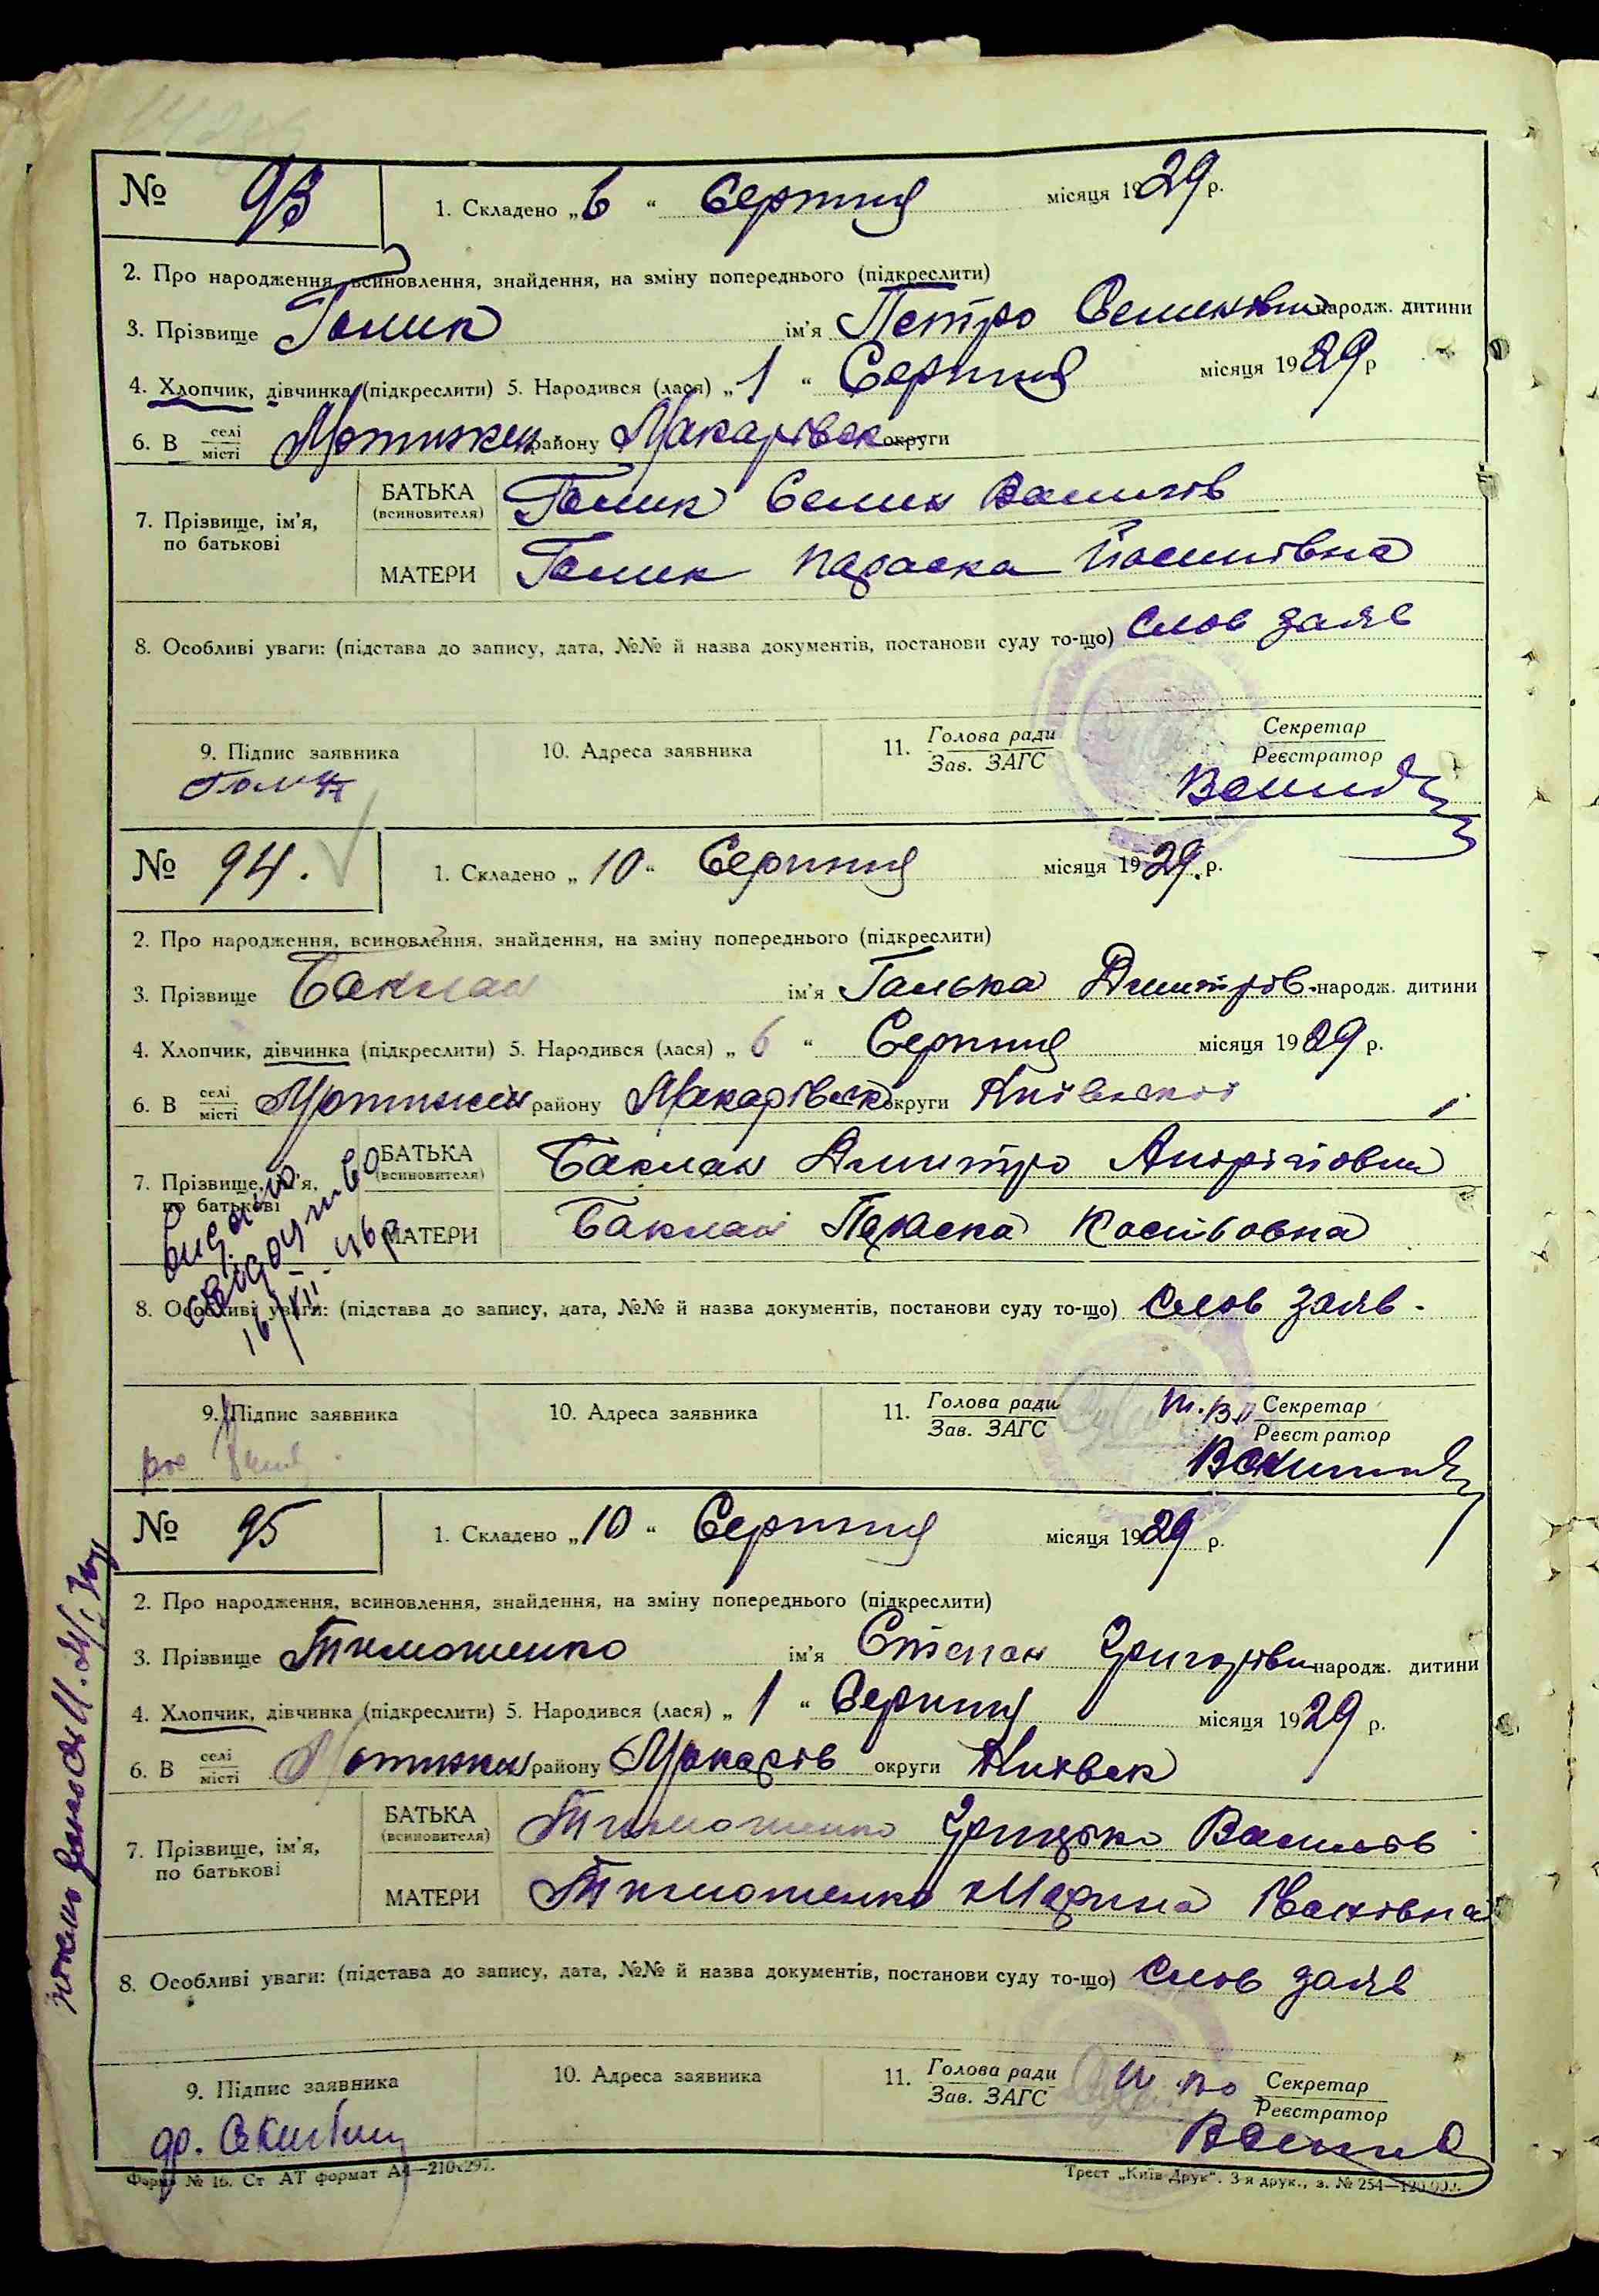 № 93
1. Складено „ 6 “ Серпня місяця 1929 р.
2. Про народження, всиновлення, знайдення, на зміну попереднього (підкреслити)
3. Прізвище Гомик ім'я Петро Семенович народж. дитини
4. Хлопчик, дівчинка (підкреслити) 5. Народився (лася) „ 1 “ Серпня місяця 1929 р
6. В селі/місті Мотижин району Макарівськ округи
7. Прізвище, ім'я, по батькові
БАТЬКА (всиновителя) Гомик Семен
МАТЕРИ Гомик Параска Йосипівна
8. Особливі уваги: (підстава до запису, дата, №№ й назва документів, постанови суду то-що) Слов заяв
9. Підпис заявника 10. Адреса заявника 11. Голова ради/Зав. ЗАГС Секретар/Реєстратор
№ 94.
1. Складено „ 10 “ Серпня місяця 1929. р.
2. Про народження, всиновлення, знайдення, на зміну попереднього (підкреслити)
3. Прізвище Баклан ім'я Галька Дмитрів. народж. дитини
4. Хлопчик, дівчинка (підкреслити) 5. Народився (лася) „ 6 “ Серпня місяця 1929 р.
6. В селі/місті Мотижин району Макарівськ округи Київської
7. Прізвище, ім'я, по батькові
БАТЬКА (всиновителя) Баклан Дмитро Андрійович
МАТЕРИ Баклан Параска
видано
свидоцтво
16/VII-46р
8. Особливі уваги: (підстава до запису, дата, №№ й назва документів, постанови суду то-що) Слов заяв.
9. Підпис заявника 10. Адреса заявника 11. Голова ради/Зав. ЗАГС Секретар/Реєстратор
№ 95
1. Складено „ 10 “ Серпня місяця 1929 р.
2. Про народження, всиновлення, знайдення, на зміну попереднього (підкреслити)
3. Прізвище Тимошенко ім'я Степан Григорович народж. дитини
4. Хлопчик, дівчинка (підкреслити) 5. Народився (лася) „ 1 “ Серпня місяця 1929 р.
6. В селі/місті Мотижин району Макарів округи Київськ
7. Прізвище, ім'я, по батькові
БАТЬКА (всиновителя) Тимошенко Грицько Василів
МАТЕРИ Тимошенко Марина Іванівна
8. Особливі уваги: (підстава до запису, дата, №№ й назва документів, постанови суду то-що) Слов заяв
9. Підпис заявника 10. Адреса заявника 11. Голова ради/Зав. ЗАГС Секретар/Реєстратор
Форма № 16. Ст АТ формат А4—210х297.
Трест „Київ-Друк“. 3-я друк., з. № 254—120.000.